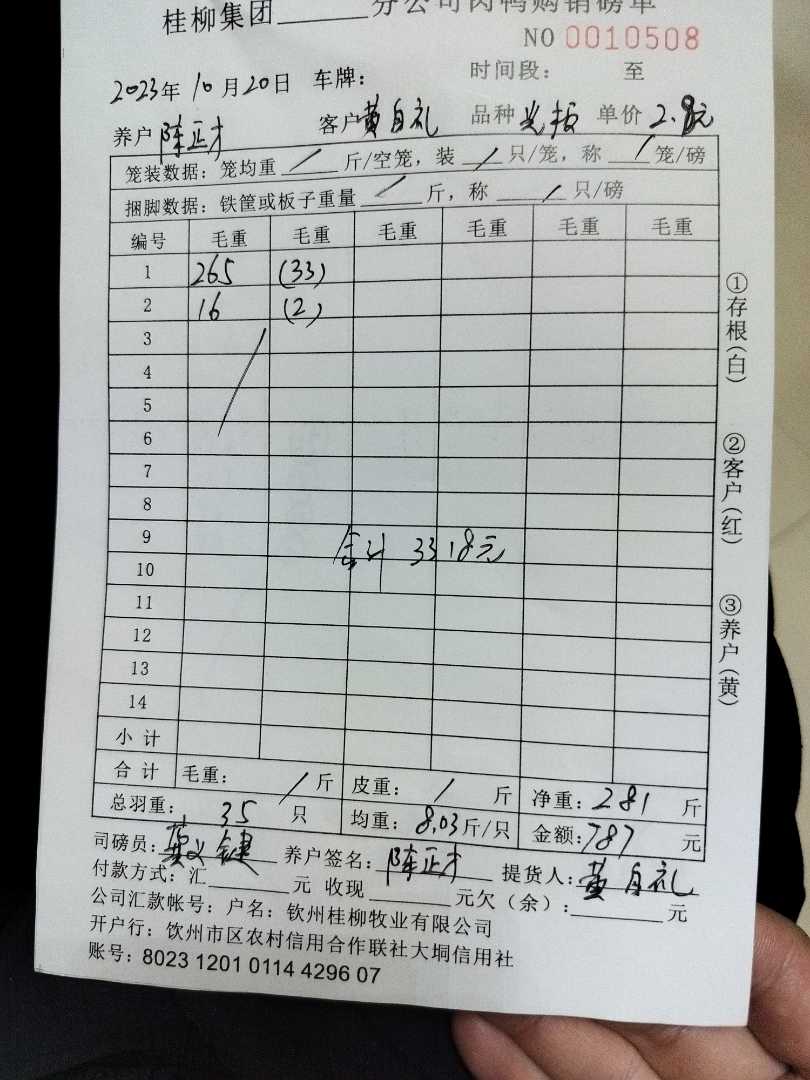 桂柳集团______分公司肉鸭购销磅单
NO 0010508
2023年10月20日 车牌: 时间段: 至
养户 陈正才 客户 黄自礼 品种 光板 单价 2.8元
笼装数据: 笼均重 / 斤/空笼, 装 / 只/笼, 称 / 笼/磅
捆脚数据: 铁筐或板子重量 / 斤, 称 / 只/磅
编号 毛重 毛重 毛重 毛重 毛重 毛重
1 265 (33)
2 16 (2)
3
4
5
6
7
8
9 合计 3318元
10
11
12
13
14
小计
合计 毛重: / 斤 皮重: / 斤 净重: 281 斤
总羽重: 35 只 均重: 8.03斤/只 金额: 787 元
司磅员: 养户签名: 陈正才 提货人: 黄自礼
付款方式: 汇______元 收现______元欠(余):______元
公司汇款帐号: 户名: 钦州桂柳牧业有限公司
开户行: 饮州市区农村信用合作联社大垌信用社
账号: 8023 1201 0114 4296 07
①存根(白)
②客户(红)
③养户(黄)